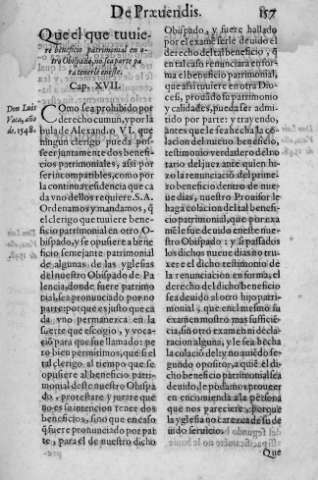 De Præuendis. 157
Que el que tuuie-
re beneficio patrimonial en o-
tro Obispado, no sea parte pa
ra tenerle en este.
Cap. XVII.
Don Luis
Vaca, año
de. 1548.
COmo sea prohibido por
derecho comun, y por la
bula de Alexandro VI. que
ningun clerigo pueda por-
seer juntamente dos benefi-
cios patrimoniales, assi por
ser incompatibles, como por
la continua residencia que ca
da vno dellos requiere S. A.
Ordenamos y mandamos, q̃
el clerigo que tuuiere bene-
ficio patrimonial en otro O-
bispado, y se opusiere a bene
ficio semejante patrimonial
de algunas de las yglesias
del nuestro Obispado de Pa
lencia, donde fuere patrimo
nial, sea pronunciado por no
parte: porque es justo que ca
da vno permanezca en la
suerte que escogio, y voca-
ció para que fue llamado: pe
ro bien permitimos, que si el
tal clerigo al tiempo que se
opusiere al beneficio patri-
monial deste nuestro Obispa
do, protestare y jurare que
no es su intencion tener dos
beneficios, sino que en caso
q̃ fuere pronunciado por par
te, para el de nuestro dicho
Obispado, y fuere hallado
por el examẽ serle deuido el
derecho del tal beneficio, q̃
en tal caso renunciara en for-
ma el beneficio patrimonial,
que assi tuuiere en otra Dio-
cesi, prouãdo su patrimonio
y calidades, pueda ser admi-
tido por parte: y trayendo,
antes que le sea hecha la co-
lacion del nueuo beneficio,
testimonio verdadero del no
tario del juez ante quien hi-
zo la renunciació del primer
beneficio dentro de nue-
ue dias, nuestro Prouisor le
haga colacion del tal benefi-
cio patrimonial, que por exa
mẽ le fue deuido en este nue-
stro Obispado: y si passados
los dichos nueue dias no tru-
xere el dicho testimonio de
la renunciacion en forma, el
derecho del dicho beneficio
sea deuido al otro hijo patri-
monial, que en el mismo fu
examen mostro mas suficié-
cia, sin otro examen ni decla-
racion alguna, y le sea hecha
la colació del: y no auiẽdo se-
gundo opositor, a quiẽ el di-
cho beneficio patrimonial sea
deuido, le podamos proueer
en encomienda a la persona
que nos pareciere, porque
la yglesia no carezca de su de
uido seruicio.
Que